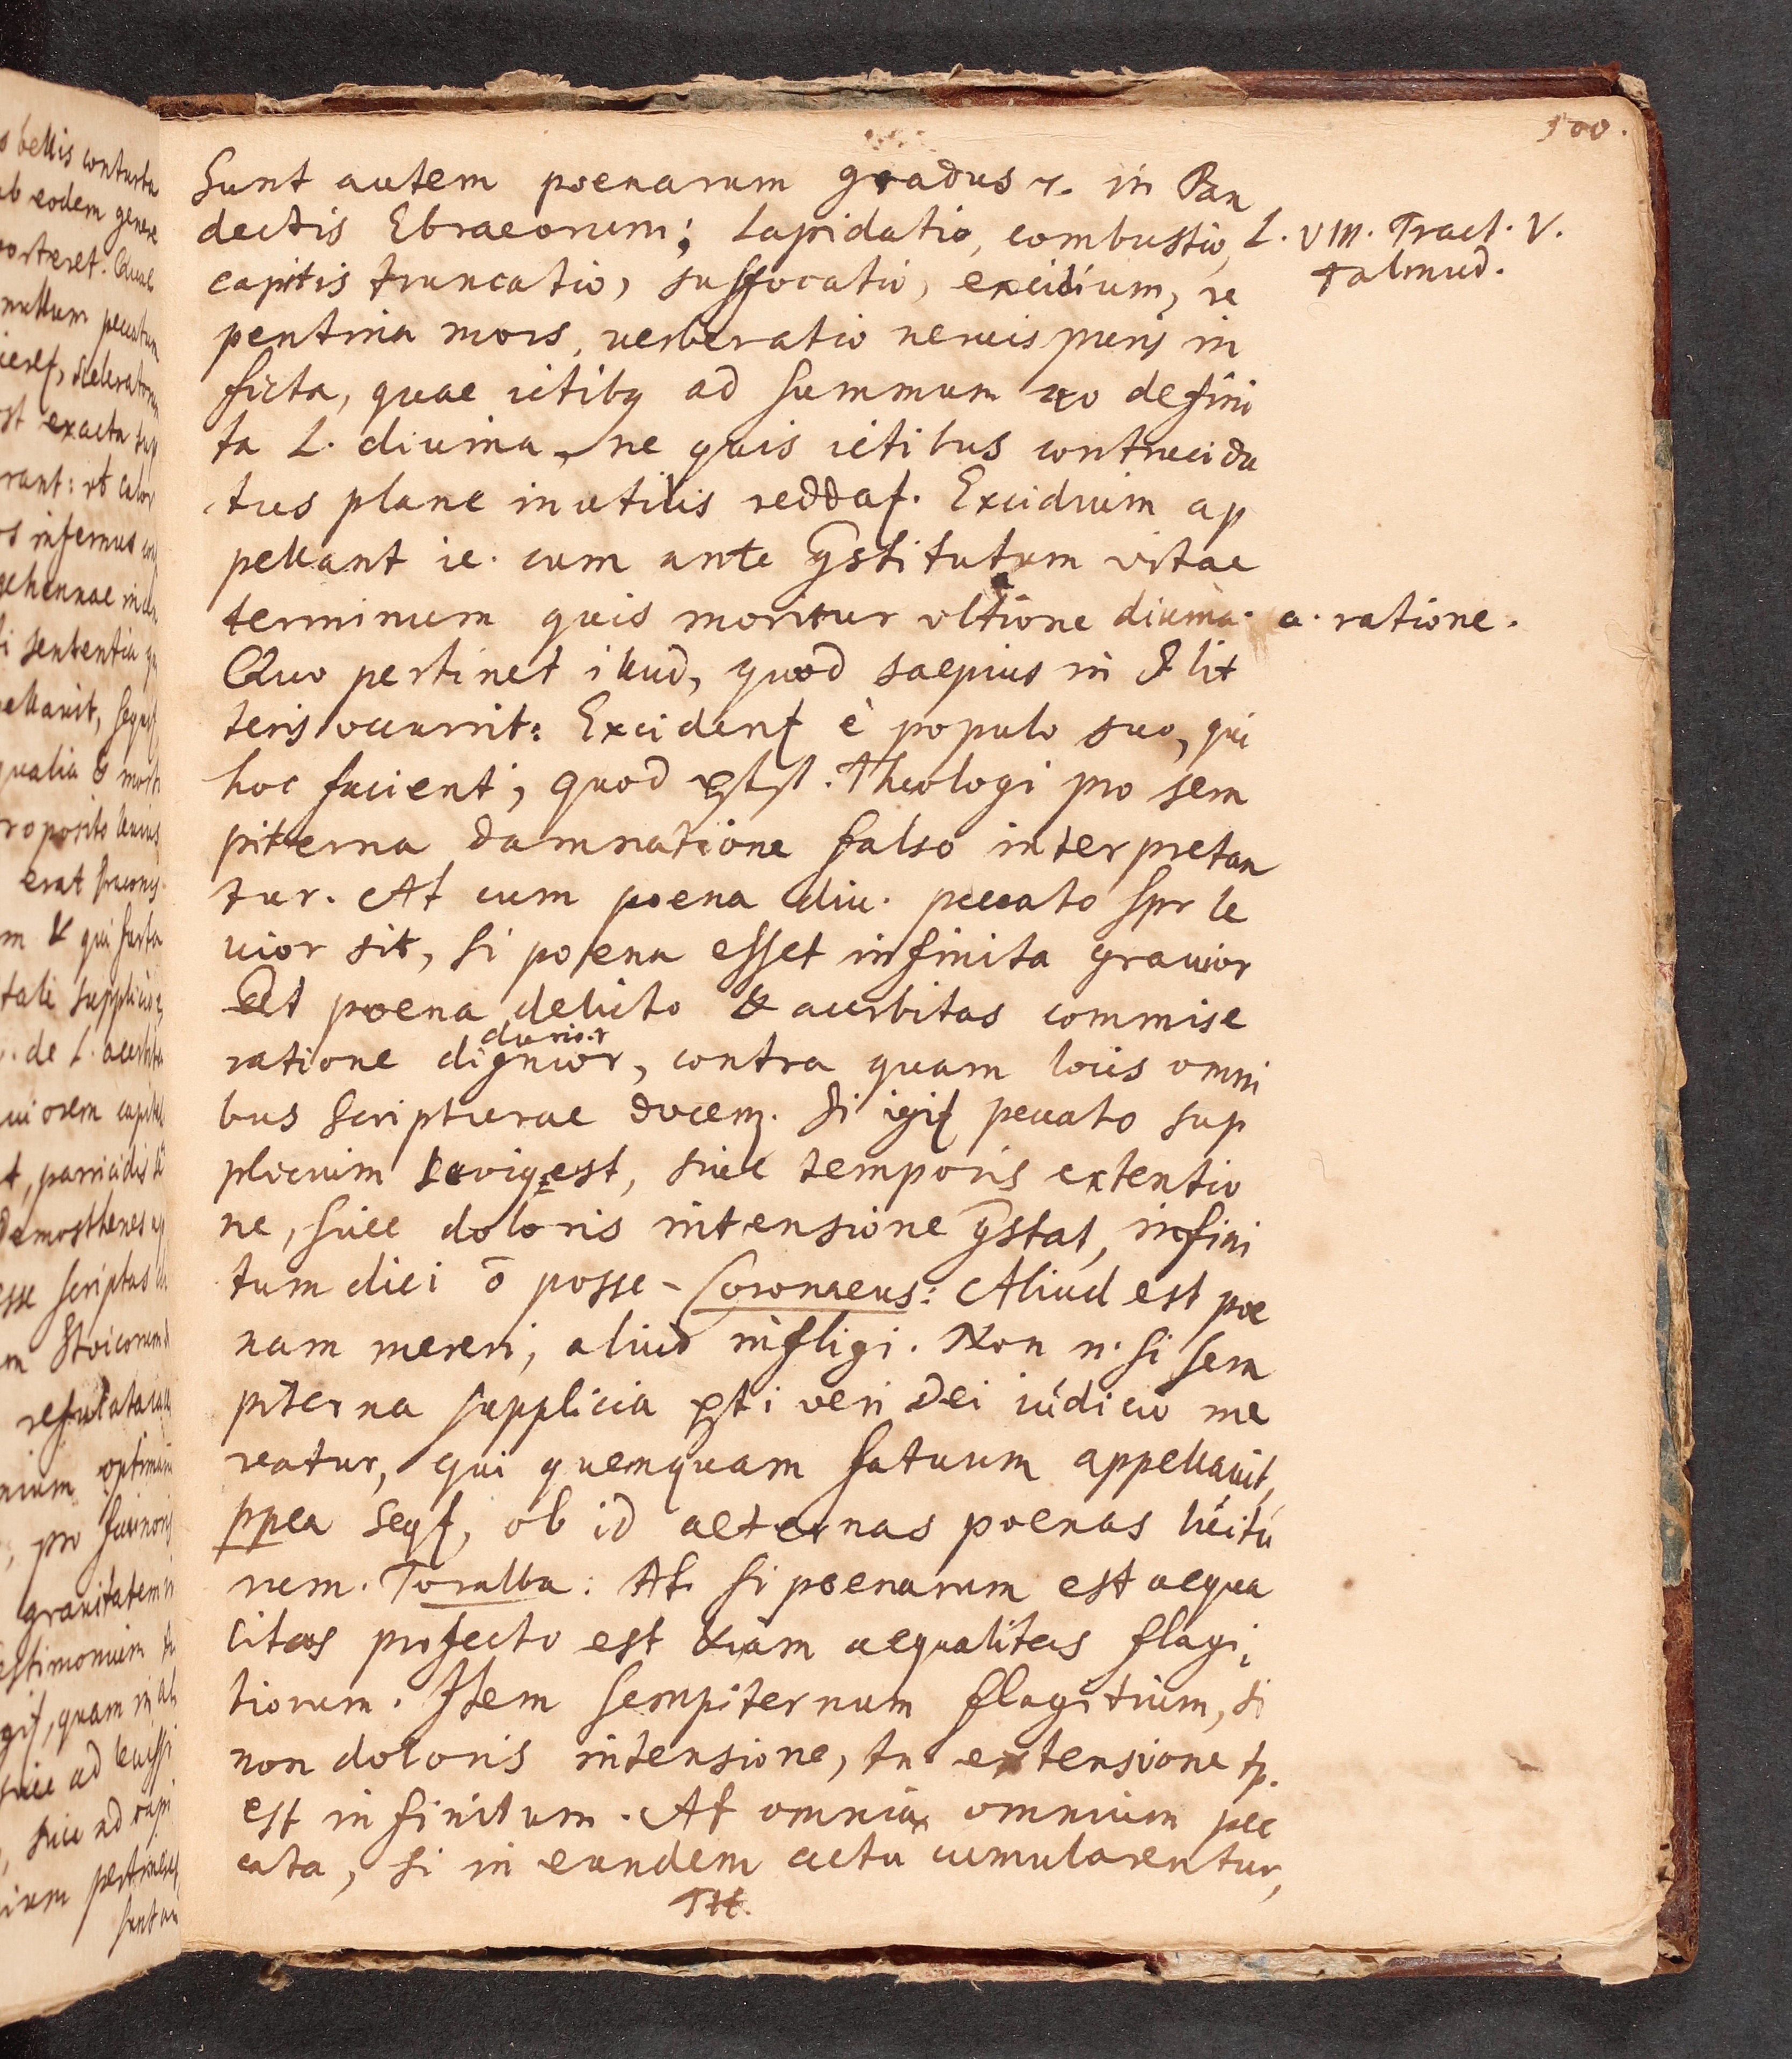 500.
Sunt autem poenarum gradus 7. in Pan
dectis Ebraeorum; Lapidatio, combustio,
L. VIII. Tract. V.
Talmud.
capitis truncatio, suffocatio, excidium, re
pentina mors, uerberatio neruis puris in
ficta, quae ictibq ad summum 40 defini
ta L. diuina, ne quis ictibus contrucida
tus plane inutilis reddat. Excidium ap
pellant ie. cum ante ꝯstitutum vitae
terminum quis moritur vltione diuina.
a. ratione.
Quo pertinet illud, quod saepius in S lit
teris occurrit: Excident è populo suo, qui
hoc facient, quod Theologi pro sem
piterna damnatione falso interpretan
tur. At cum poena diu. peccato spr le
uior sit, si poena esset infinita grauior
Et poena delicto & acerbitas commise
durior
ratione dignior, contra quam locis omni
bus Scripturae docem. Si igit peccato sup
plicium est, siue temporis extentio
ne, siue doloris intensione ꝯstat, infini
tum dici ō posse - Coronaeus: Aliud est poe
nam mereri, aliud infligi. Non n. si sem
piterna supplicia Dei iúdicio me
reatur, qui quemquam fatuum appellauit,
ppea seqt, ob id aeternas poenas lúitú
rum. Toralba: At si poenarum est aequa
litas profecto est &iam aequalitas flagi,
tiorum. Item sempiternum flagitium, si
non doloris intensione, tn extensione tp.
est infinitum. At omnia omnium pec
cata, si in eundem actu cumularentur,